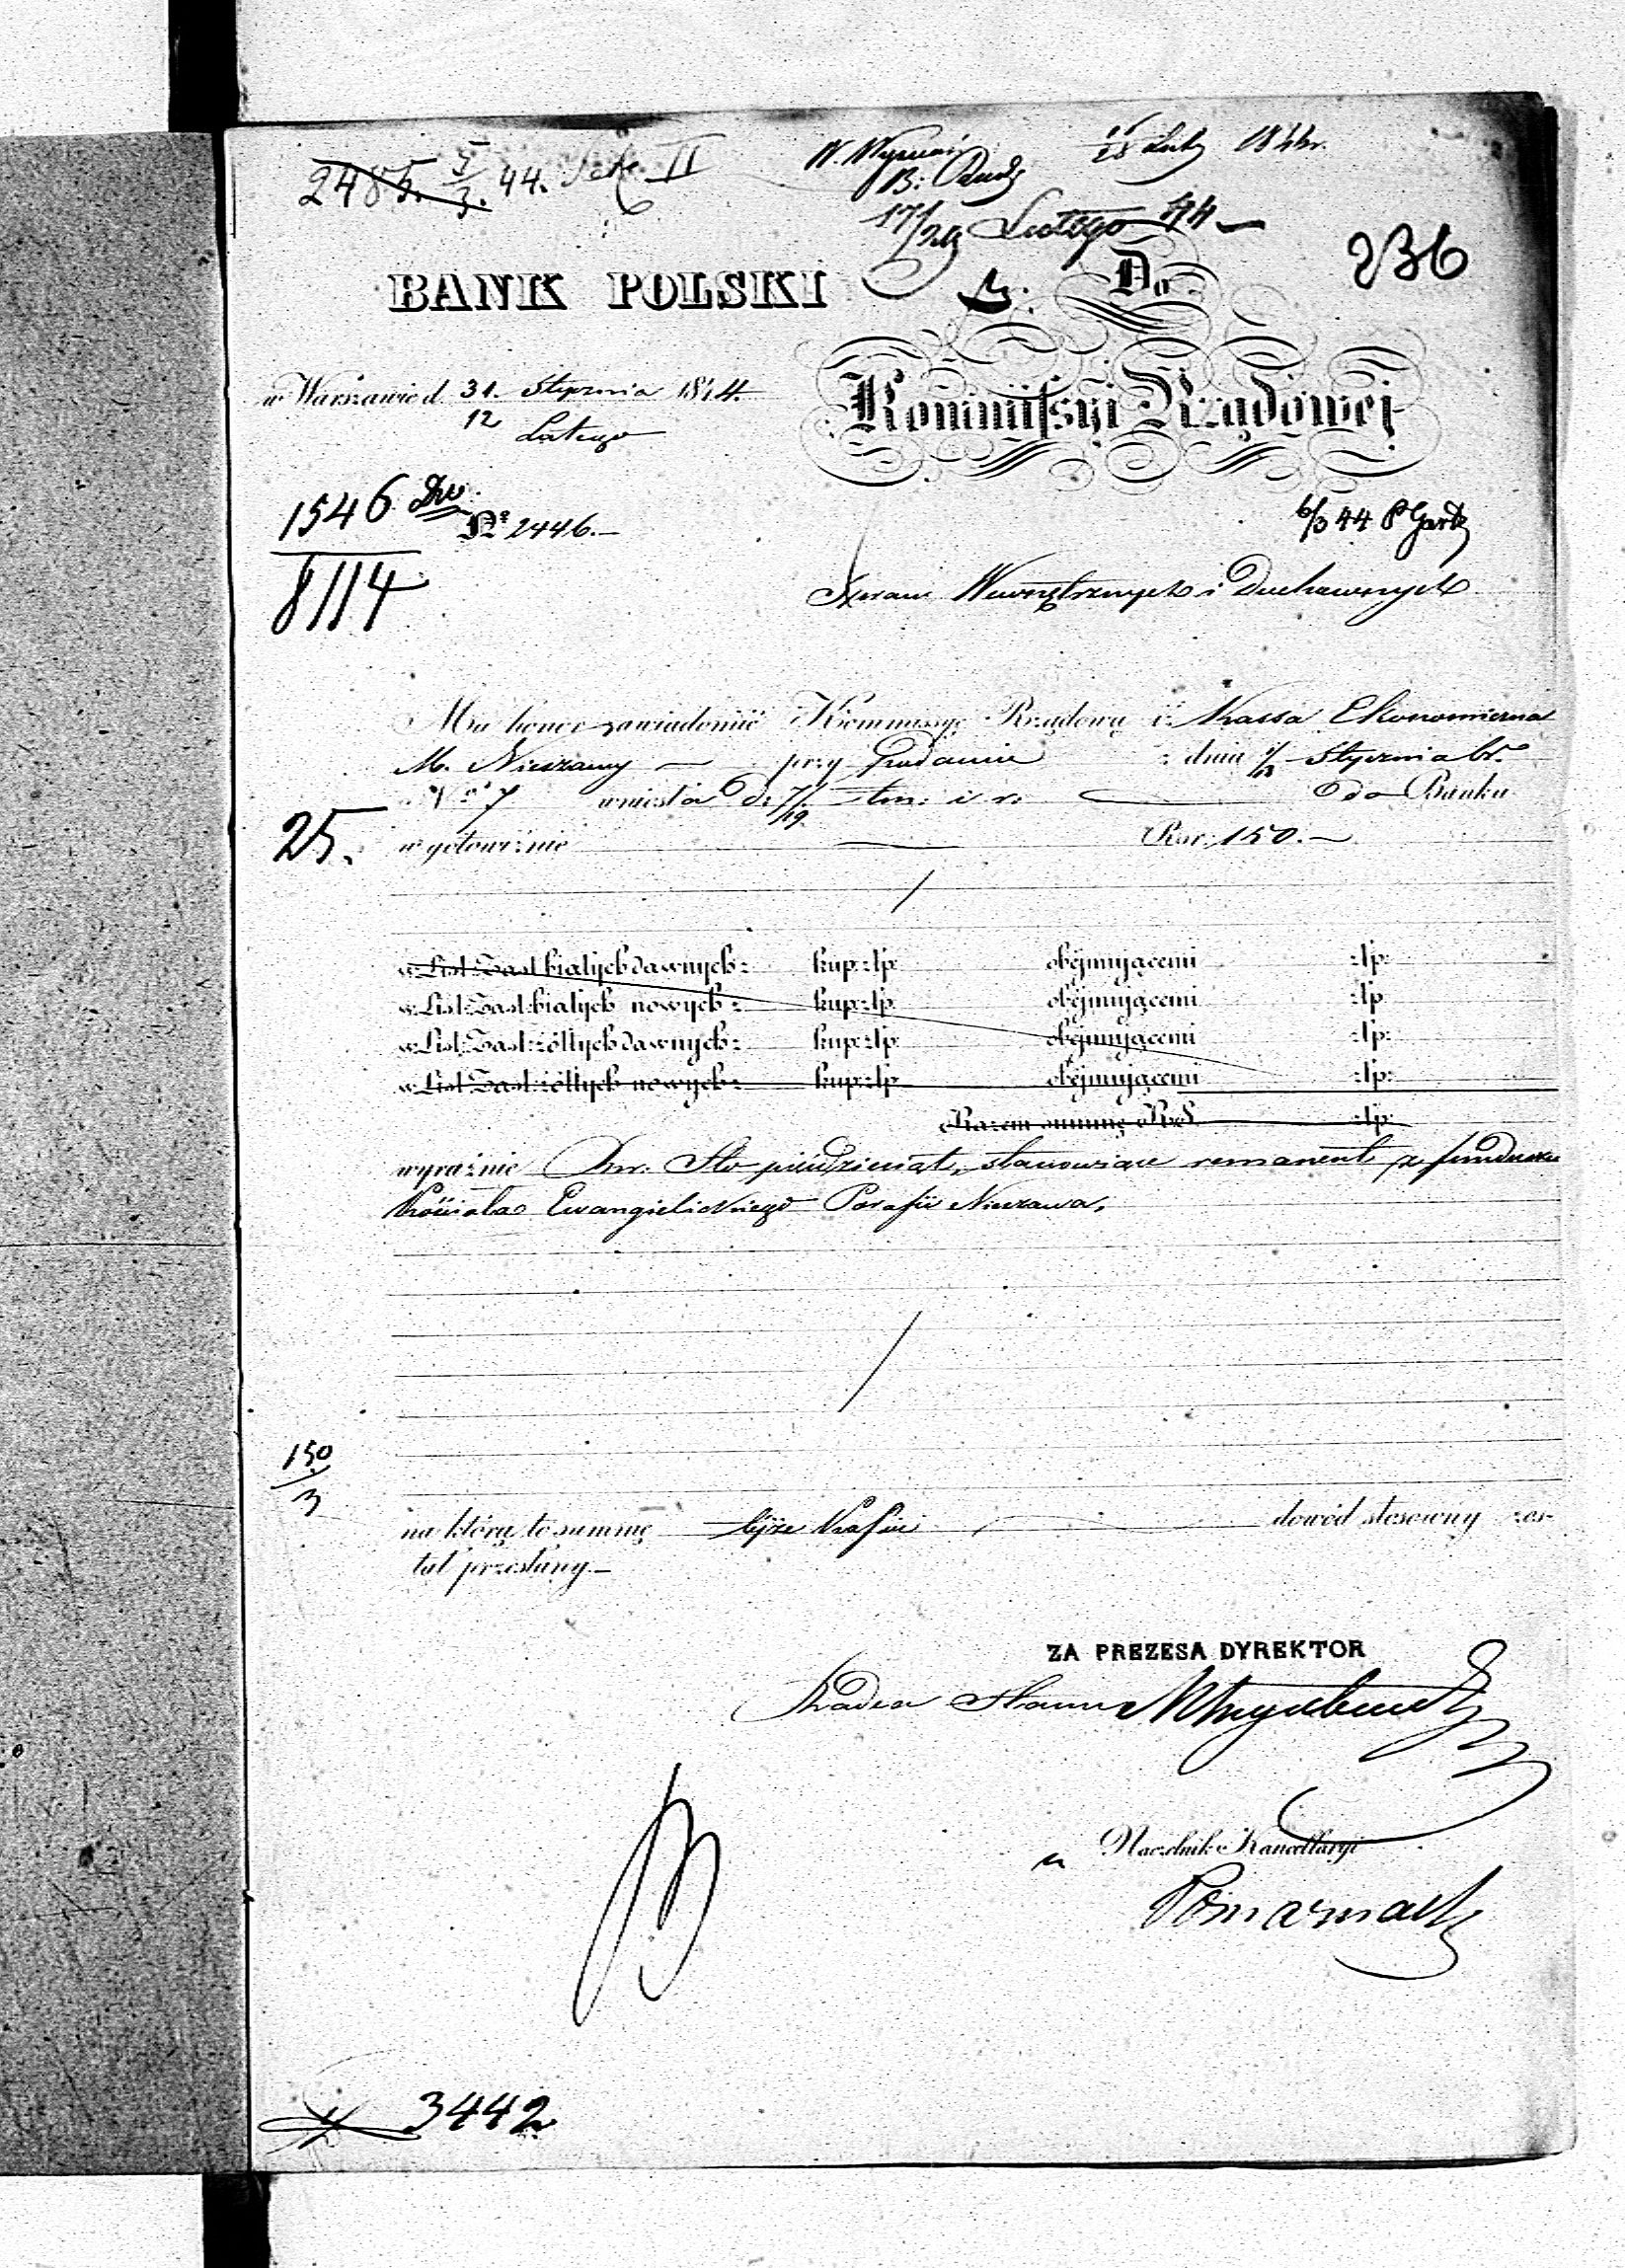 2485. 5/3. 44. Sekc. II
16/28 Luty 1844 r.
17/29 Lutego 44
236
BANK POLSKI
Do
Kommissyi Rządowej
w Warszawie d. 31. Stycznia 1844.
12 Lutego
1546 Dw
8114
Nr 2446.
6/3 44
Spraw Wewnętrznych i Duchownych
Ma honor zawiadomić Kommissyę Rządową iż Kassa Ekonomiczna
M. Nieszawy — przy Podaniu z dnia 1/13 Stycznia br.
Nr 7 wniosła d. 7/19 tm. i r. do Banku
25.
w gotowiźnie Rsr. 150.—
w List: Zast: białych dawnych: kup: złp: obejmującemi złp:
w List: Zast: białych nowych: kup: złp: obejmującemi złp:
w List: Zast: żółtych dawnych: kup: złp: obejmującemi złp:
w List: Zast: żółtych nowych: kup: złp: obejmującemi złp:
Razem summę RoS. złp:
wyraźnie Rsr. Sto pięćdziesiąt, stanowiące remanent z funduszu
Kościoła Ewangielickiego Parafii Nieszawa.
150/3
na którą to summę tejże Kassie dowód stosowny zos-
tał przesłany.—
ZA PREZESA DYREKTOR
Radca Stanu
Naczelnik Kancellaryi
3442